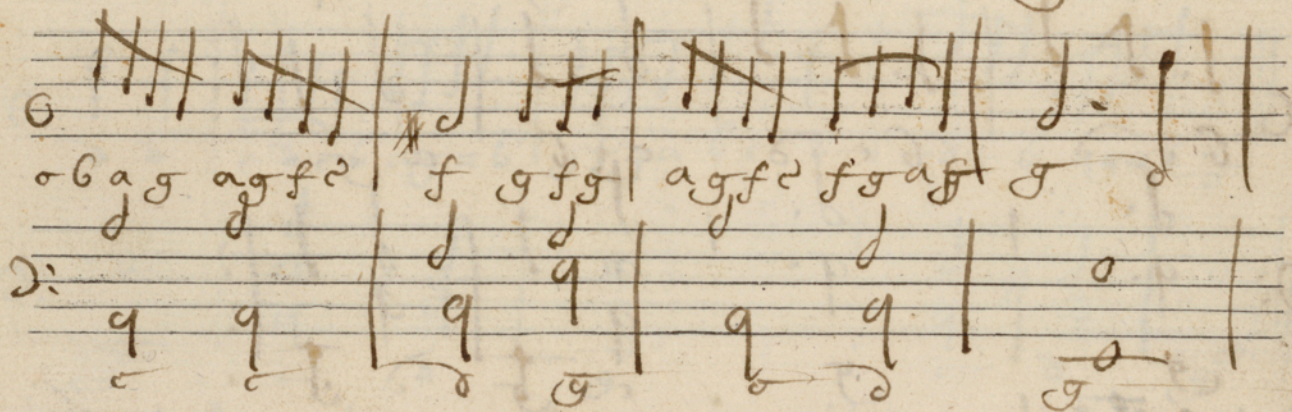 c b a g a g f e f g f g a g f e f g a f g d
c c d g c d g